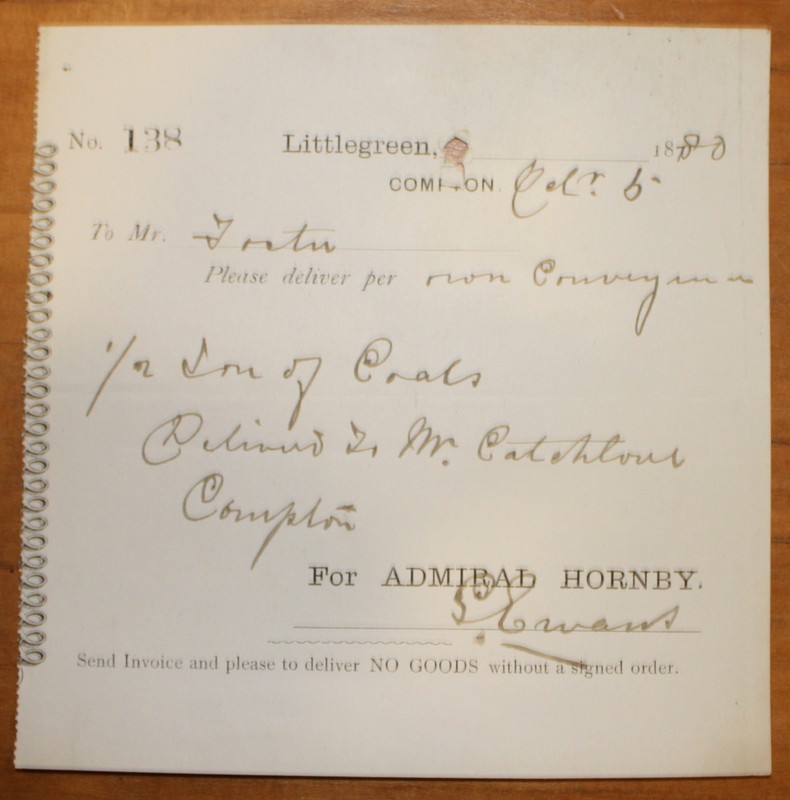 No. 138 Littlegreen, 1880
COMPTON. Octr. 5
To Mr. Foster
Please deliver per own Conveyance
1/2 Ton of Coals
Delivered To Mr. Catchlove
Compton
For ADMIRAL HORNBY.
Evans
Send Invoice and please to deliver NO GOODS without a signed order.